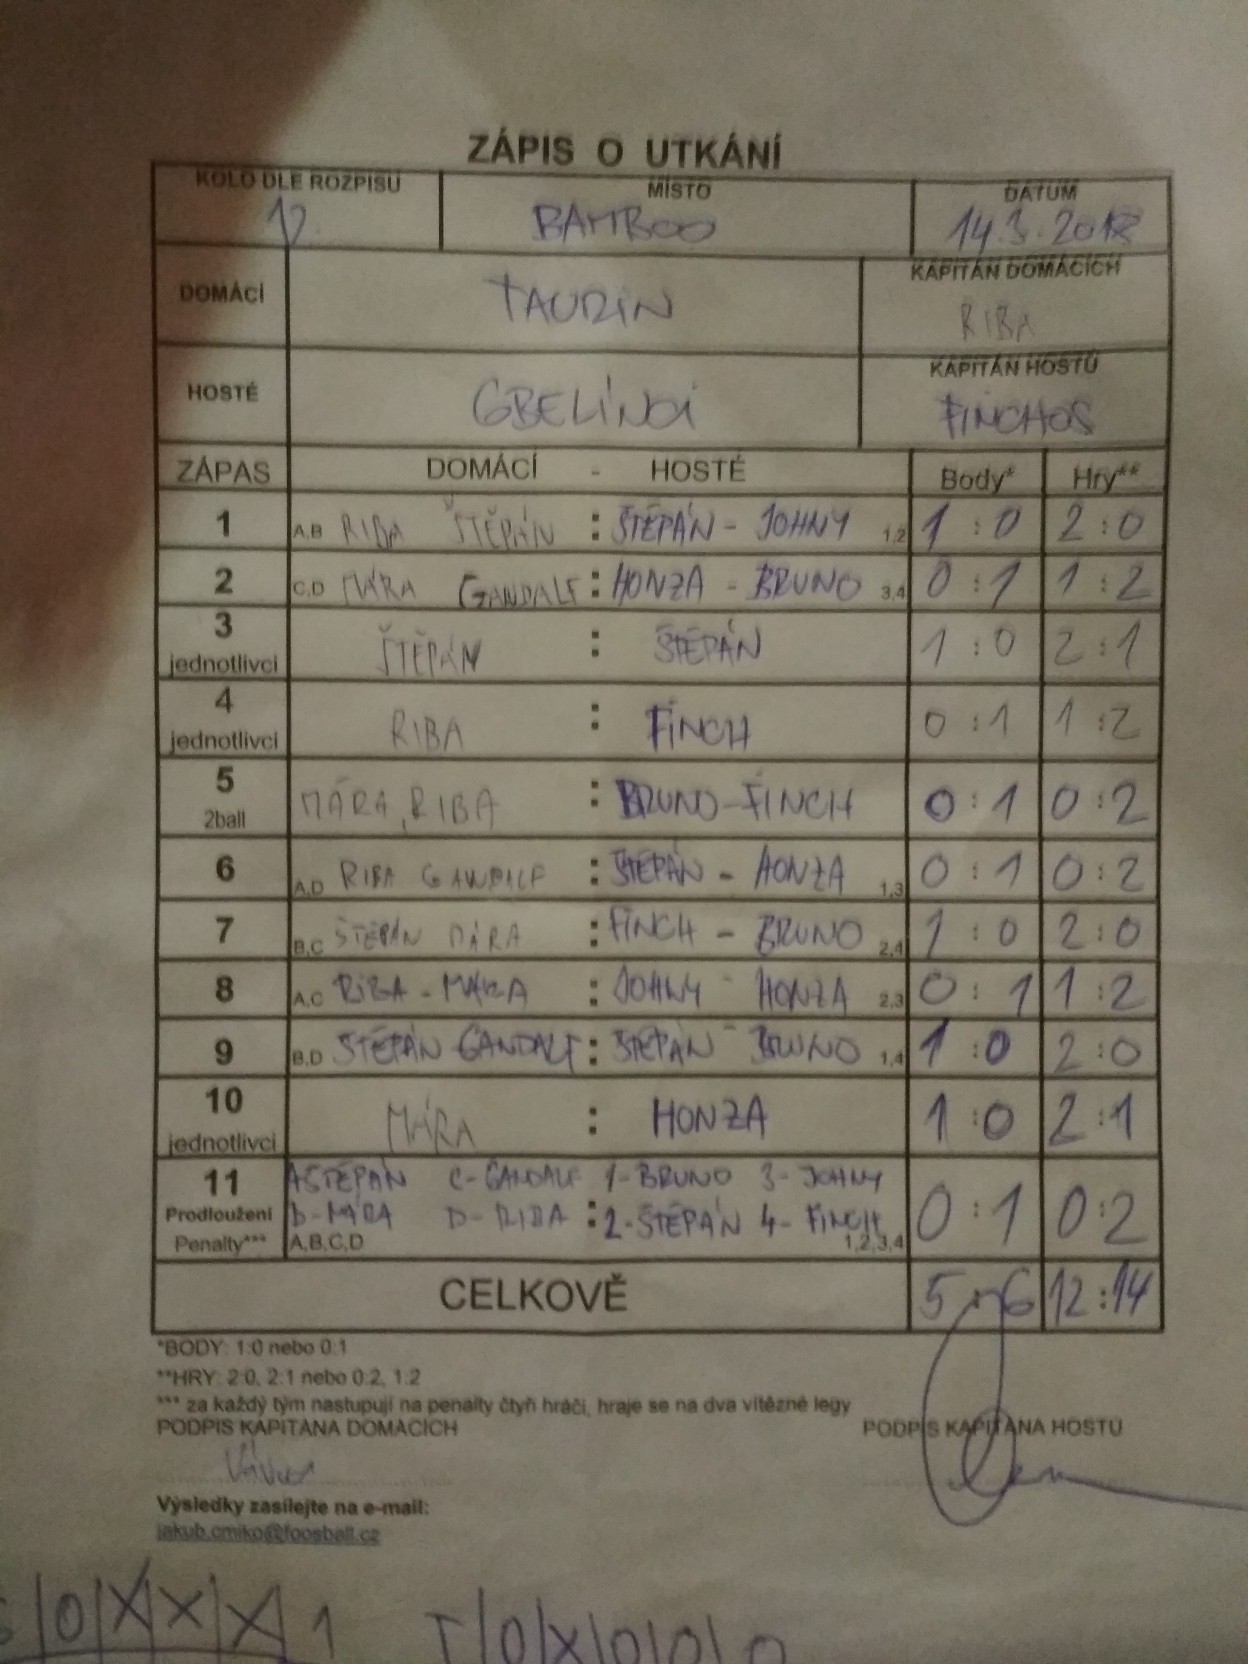 ZÁPIS O UTKÁNÍ
KOLO DLE ROZPISU MÍSTO DATUM
BAMBOO 14.3.2018
DOMÁCÍ TAURIN KAPITÁN DOMÁCÍCH
RIBA
HOSTÉ GBELÍNCI KAPITÁN HOSTŮ
FINCHOS
ZÁPAS DOMÁCÍ - HOSTÉ Body* Hry**
1 A,B RIBA ŠTĚPÁN : ŠTĚPÁN - JOHNY 1,2 1:0 2:0
2 C,D MÁRA GANDALF : HONZA - BRUNO 3,4 0:1 1:2
3 jednotlivci ŠTĚPÁN : ŠTĚPÁN 1:0 2:1
4 jednotlivci RIBA : FINCH 0:1 1:2
5 2ball MÁRA, RIBA : BRUNO-FINCH 0:1 0:2
6 A,D RIBA GANDALF : ŠTĚPÁN - HONZA 1,3 0:1 0:2
7 B,C ŠTĚPÁN MÁRA : FINCH - BRUNO 2,4 1:0 2:0
8 A,C RIBA - MÁRA : JOHNY - HONZA 2,3 0:1 1:2
9 B,D ŠTĚPÁN GANDALF : ŠTĚPÁN - BRUNO 1,4 1:0 2:0
10 jednotlivci MÁRA : HONZA 1:0 2:1
11 A ŠTĚPÁN C-GANDALF 1-BRUNO 3-JOHNY
Prodloužení B-MÁRA D-RIBA : 2-ŠTĚPÁN 4-FINCH 0:1 0:2
Penalty*** A,B,C,D 1,2,3,4
CELKOVĚ 5:6 12:14
*BODY: 1:0 nebo 0:1
**HRY: 2:0, 2:1 nebo 0:2, 1:2
*** za každý tým nastupují na penalty čtyři hráči, hraje se na dva vítězné legy
PODPIS KAPITÁNA DOMÁCÍCH PODPIS KAPITÁNA HOSTŮ
Výsledky zasílejte na e-mail:
jakub.cmiko@foosball.cz
0 X X X 1 T 0 X 0 0 0